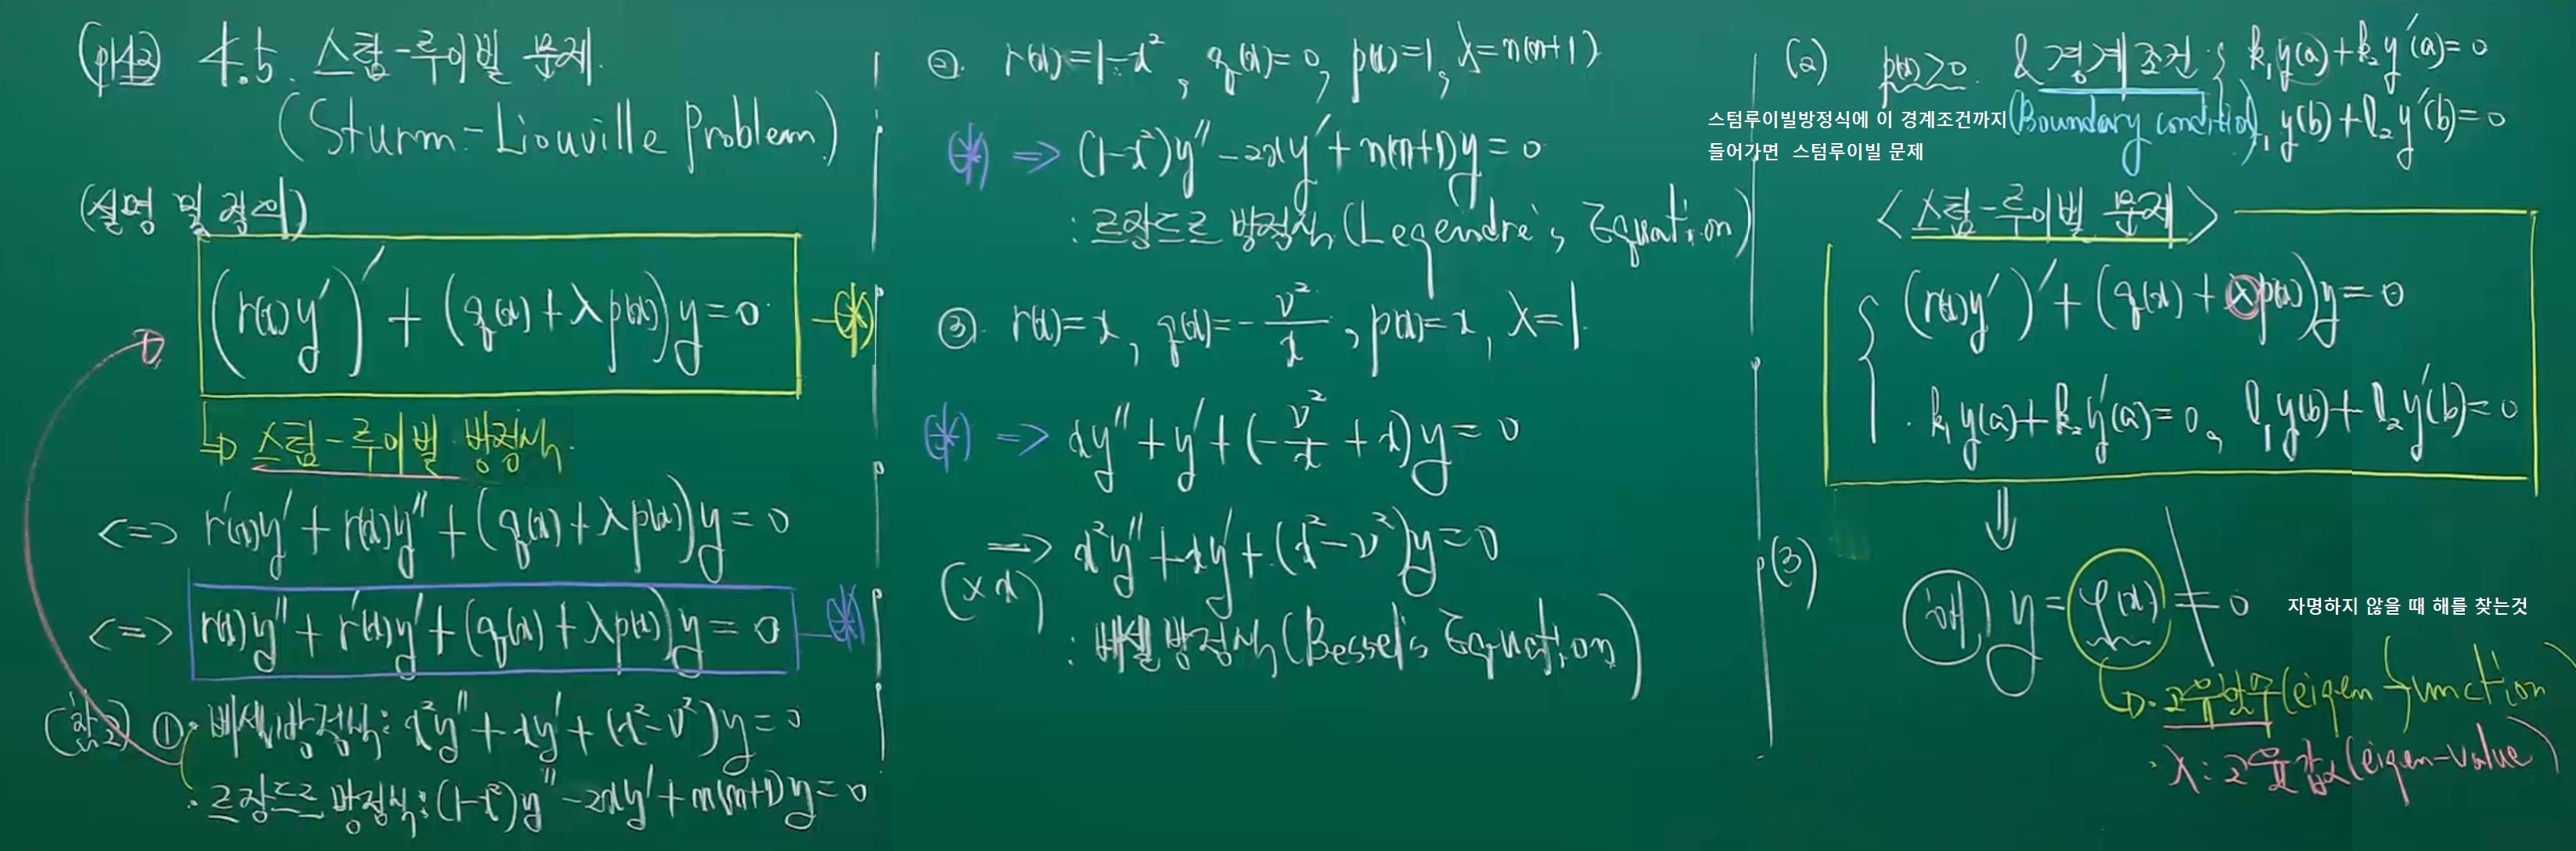 (p142) 4.5. 스텀-루이빌 문제.
(Sturm-Liouville Problem)
(설명 및 정의)
(r(x)y')' + (q(x)+λp(x))y=0 -(*)
↳ 스텀-루이빌 방정식.
<=> r'(x)y' + r(x)y'' + (q(x)+λp(x))y=0
<=> r(x)y'' + r'(x)y' + (q(x)+λp(x))y=0 -(*)
(참고) ①· 베셀방정식: x²y''+xy'+(x²-ν²)y=0
· 르장드르 방정식: (1-x²)y''-2xy'+n(n+1)y=0
②. r(x)=1-x², q(x)=0, p(x)=1, λ=n(n+1)
(*) => (1-x²)y''-2xy'+n(n+1)y=0
: 르장드르 방정식 (Legendre's Equation)
③. r(x)=x, q(x)=-ν²/x, p(x)=x, λ=1.
(*) => xy''+y'+(-ν²/x+x)y=0
=> x²y''+xy'+(x²-ν²)y=0
(×x)
: 베셀방정식 (Bessel's Equation)
(2) p(x)>0. & 경계조건 { k₁y(a)+k₂y'(a)=0
스텀루이빌방정식에 이 경계조건까지 (Boundary condition) l₁y(b)+l₂y'(b)=0
들어가면 스텀루이빌 문제
<스텀-루이빌 문제>
{ (r(x)y')'+(q(x)+λp(x))y=0
· k₁y(a)+k₂y'(a)=0, l₁y(b)+l₂y'(b)=0
⇓
(3) 해 y=φ(x)≠0 자명하지 않을 때 해를 찾는것
↳· 고유함수 (eigen function)
· λ: 고유값 (eigen-value)